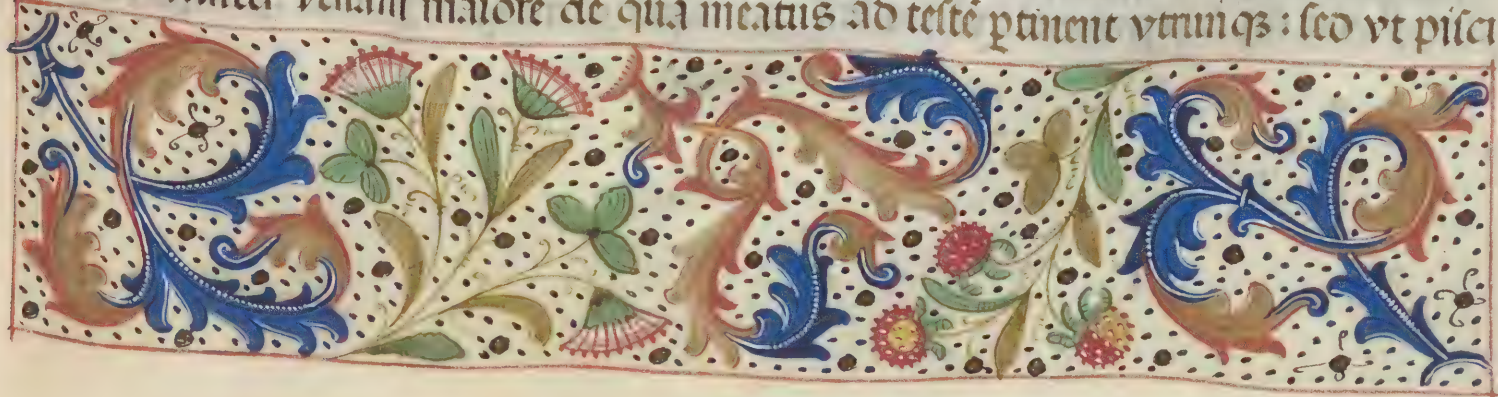 venam maiorē de qua meatus ad testē ꝑtinent vtrunqꝫ : sed vt pisci